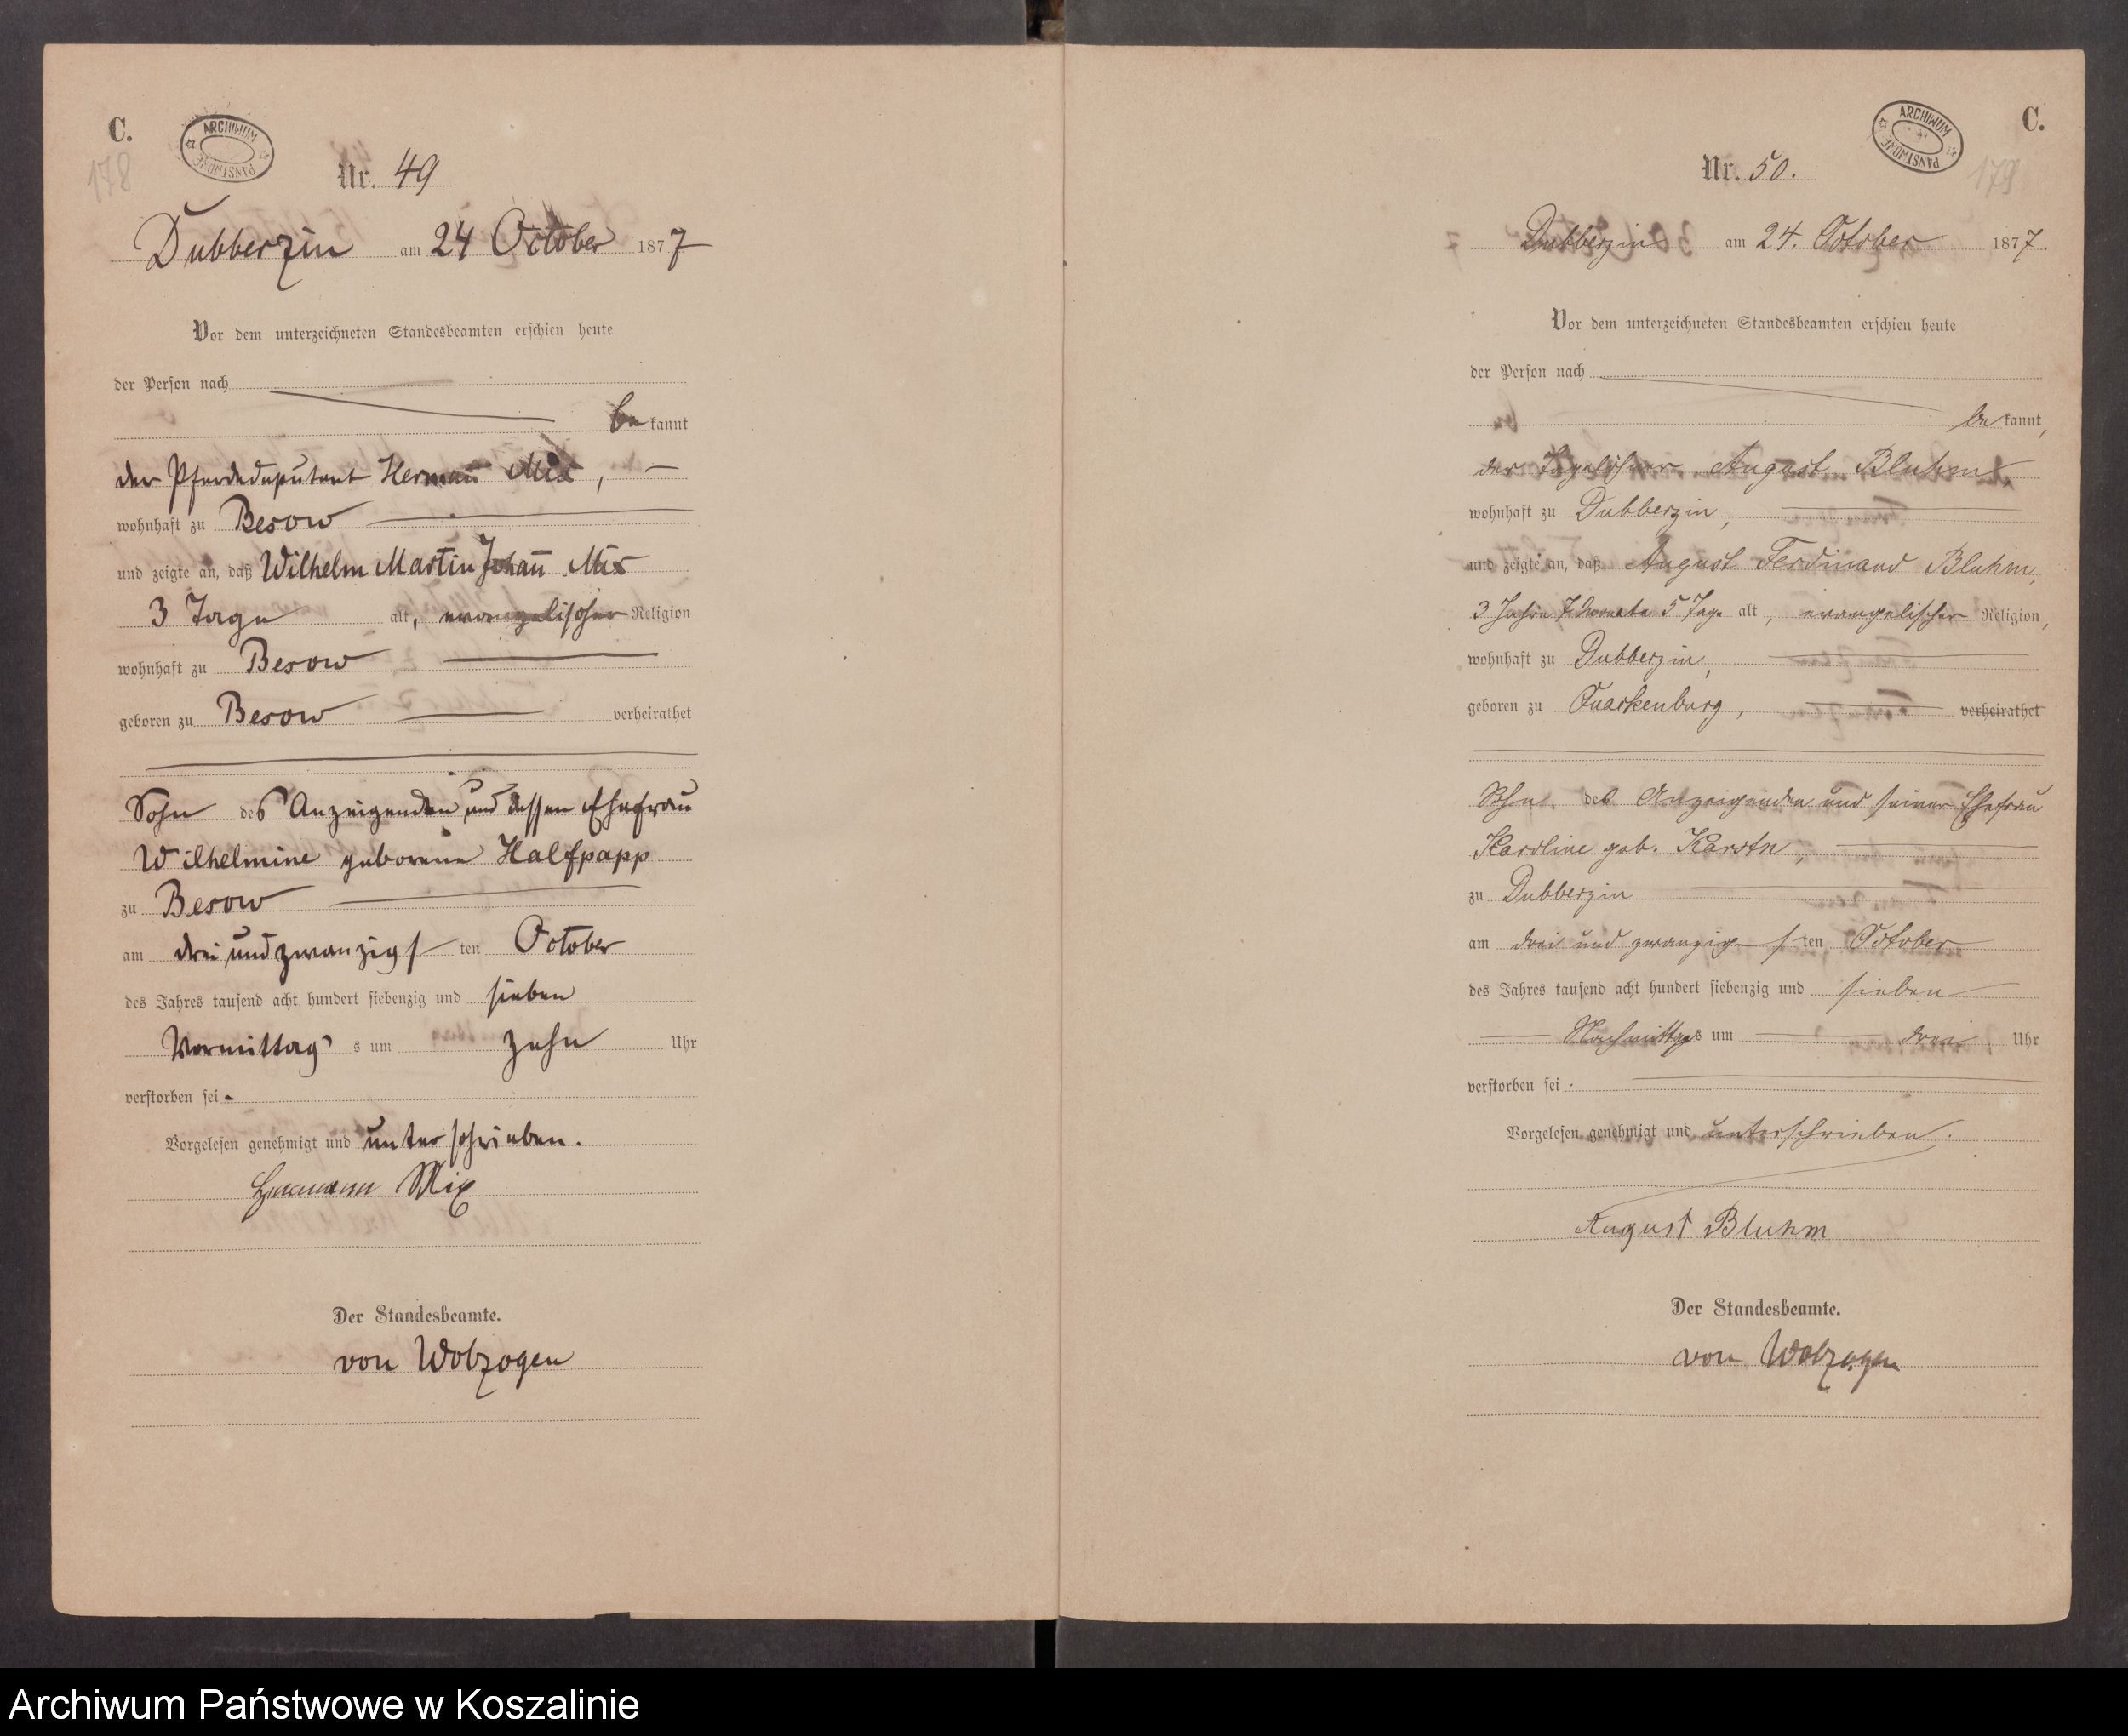 C.
ARCHIWUM PAŃSTWOWE
178
Nr. 49
Dubberzin am 24 October 1877
Vor dem unterzeichneten Standesbeamten erschien heute
der Person nach
be kannt
der Pferdedeputant Hermañ Mix,
wohnhaft zu Besow
und zeigte an, daß Wilhelm Martin Johañ Mix
3 Tage alt, evangelischer Religion
wohnhaft zu Besow
geboren zu Besow verheirathet
Sohn des Anzeigenden und dessen Ehefrau
Wilhelmine geborene Halfpapp
zu Besow
am drei und zwanzigs ten October
des Jahres tausend acht hundert siebenzig und sieben
Vormittag s um zehn Uhr
verstorben sei.
Vorgelesen genehmigt und unterschrieben.
Herrmann Mix
Der Standesbeamte.
von Wolzogen
C.
ARCHIWUM PAŃSTWOWE
179
Nr. 50.
Dubberzin am 24. October 1877.
Vor dem unterzeichneten Standesbeamten erschien heute
der Person nach
be kannt,
der Tagelöhner August Bluhm,
wohnhaft zu Dubberzin,
und zeigte an, daß August Ferdinand Bluhm,
3 Jahre 7 Monate 5 Tage alt, evangelischer Religion,
wohnhaft zu Dubberzin,
geboren zu Quarkenburg, verheirathet
Sohn des Anzeigenden und seiner Ehefrau
Karoline geb. Karstn,
zu Dubberzin
am drei und zwanzigs ten October
des Jahres tausend acht hundert siebenzig und sieben
Nachmittags um drei Uhr
verstorben sei.
Vorgelesen genehmigt und unterschrieben.
August Bluhm
Der Standesbeamte.
von Wolzogen
Archiwum Państwowe w Koszalinie